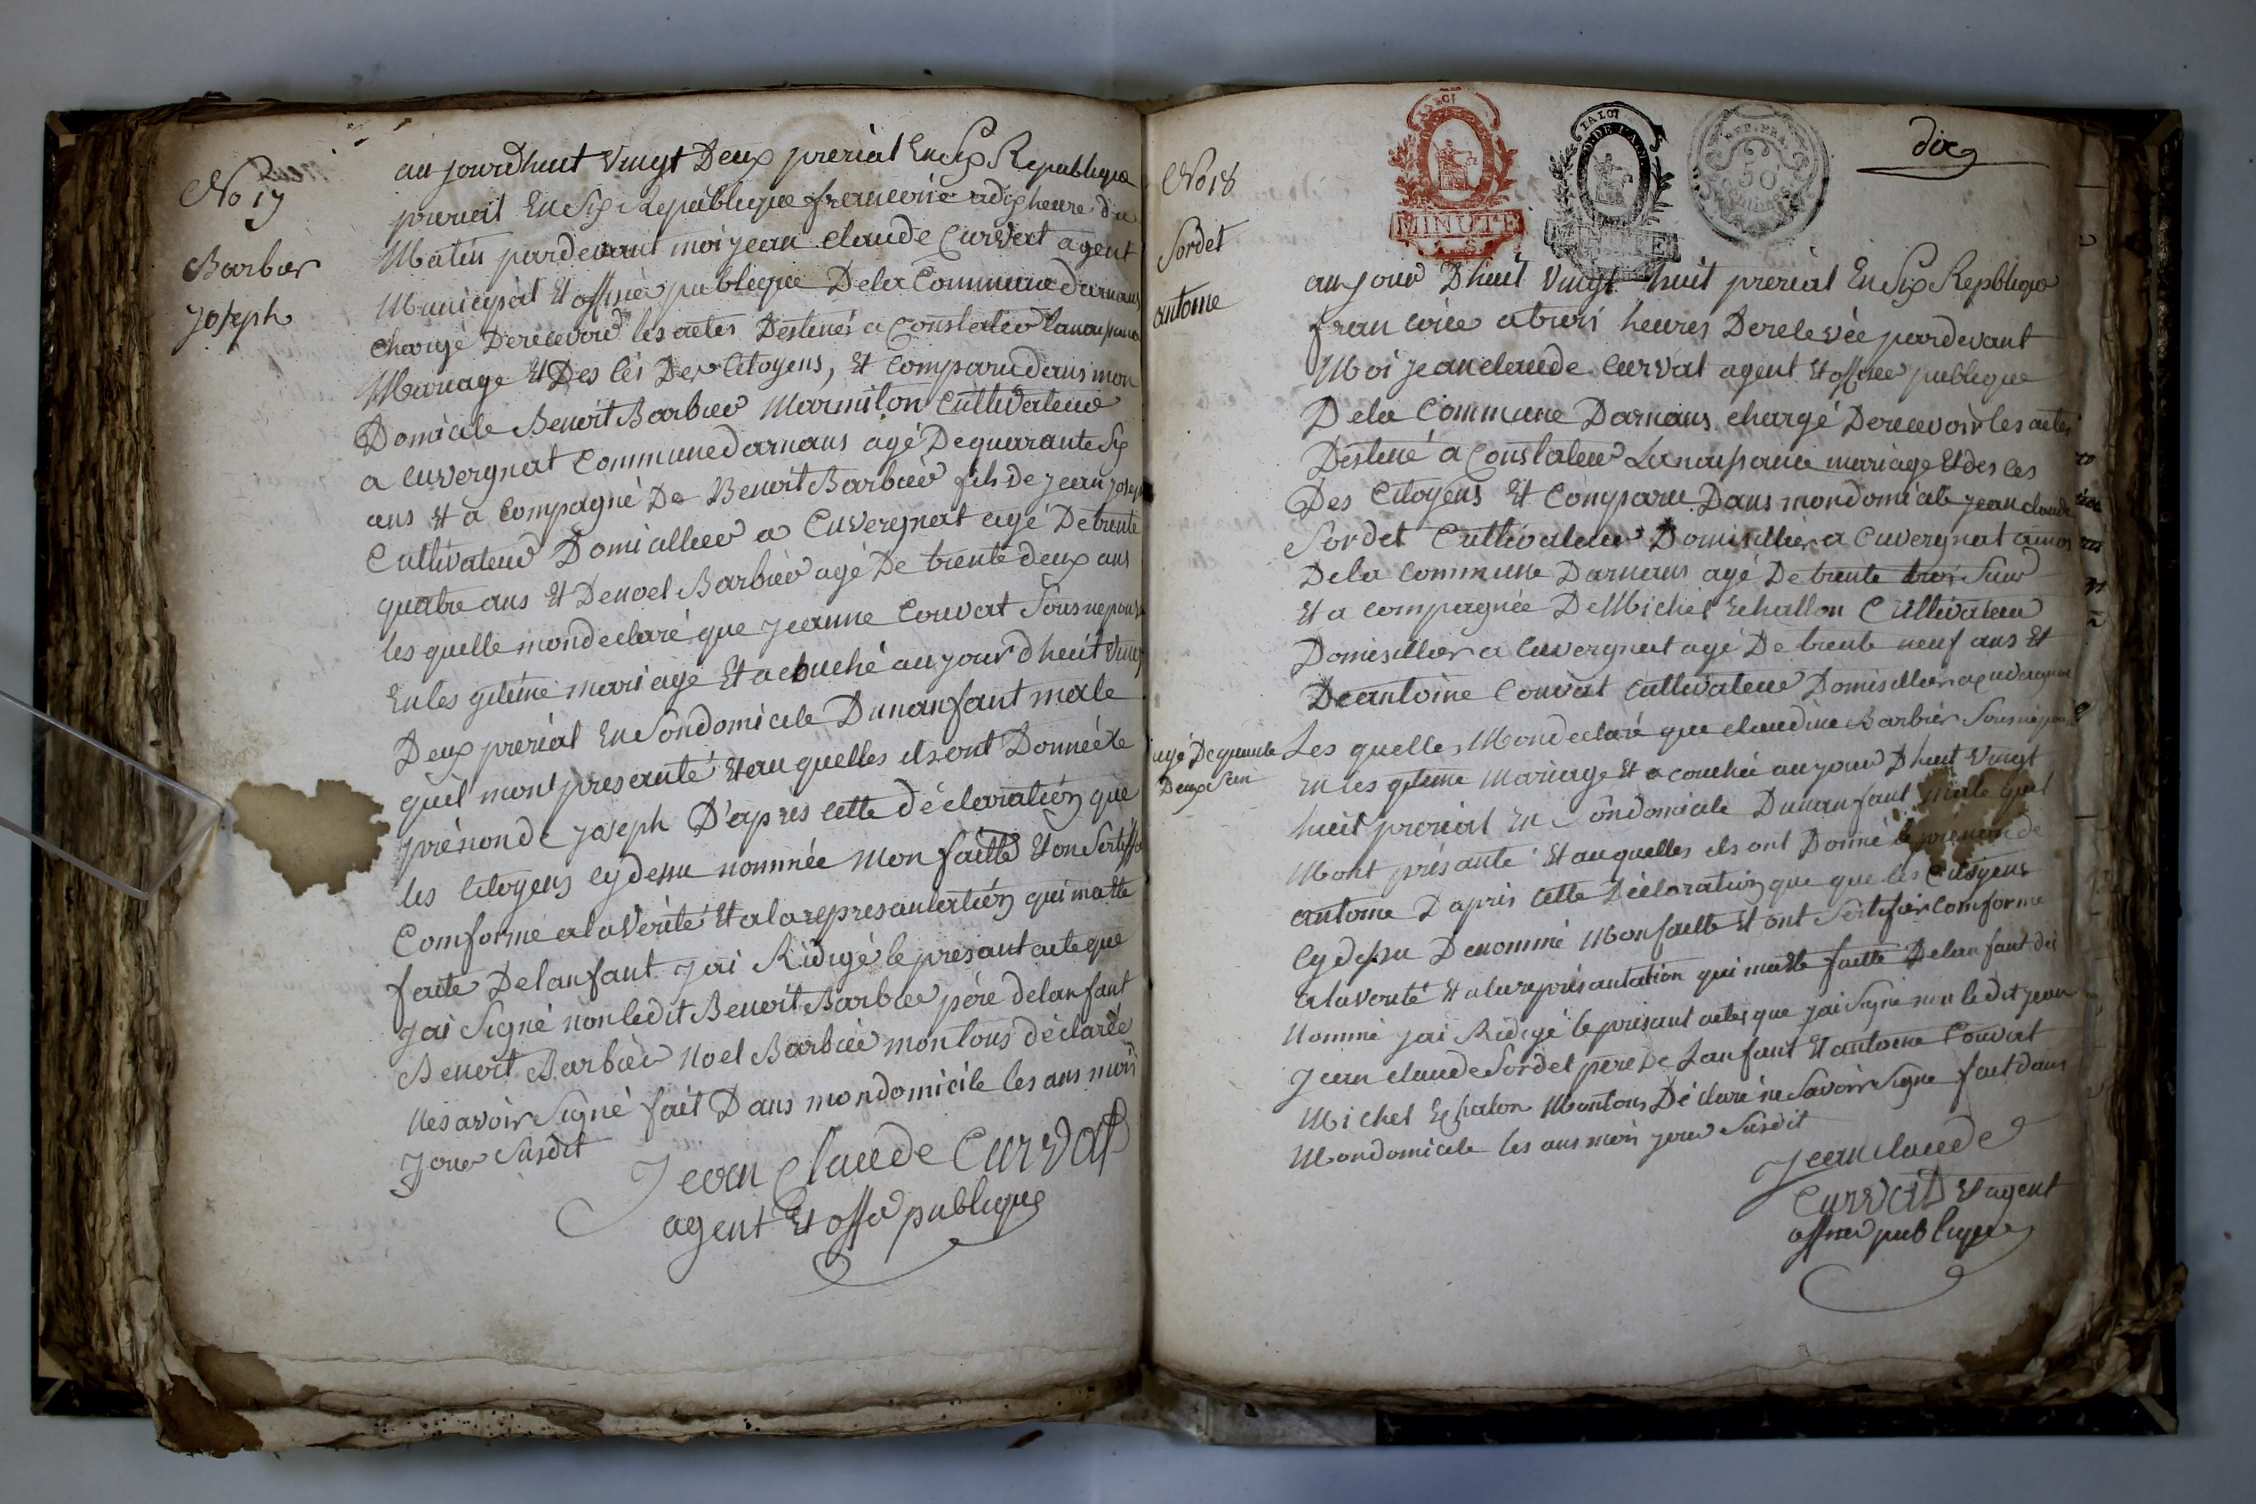 No 17
Barbier
Joseph
au jourdhuit vingt Deux prerial En Six Republique
prerial En Six Republique francoise a dix heure du
Matin pardevant moi jean claude Curvat agent
Municipal Et offisier publique De la Commune darnans
chargé De recevoir les actes Destinés a Constater la naissance
Mariage Et Des cés Des Citoyens, Et Comparu dans mon
Domicile Benoit Barbier Marmiton Cultivateur
a Cuvergnat Commune darnans agé De quarante Six
ans Et a Compagné De Benoit Barbier fils de jean joseph
Cultivateur Domicillier a Cuvergnat agé De trente
quatre ans Et De noel Barbier agé De trente deux ans
les quelle mon declaré que jeanne Couvat Son
En les gitime mariage Et acouché au jour dhuit vingt
Deux prerial En Son domicile Dun anfant male
quil mont presanté Et au quelles ils ont Donné le
prénon de joseph D'apres cette déclaration que
les Citoyens cy dessu nommée mon faitte Et on Sertiffi
Comforme a la Vérité Et a la representation qui matte
faite De lanfant jai Ridigé le presant acte que
jai Signé non ledit Benoit Barbier pére de lanfant
Benoit Barbier Noel Barbier mon tous déclarée
ne savoir Signé fait Dans mon domicile les ans mois
jour Susdit
Jean Claude Curvat
agent Et offier publique
dix
LA LOI
MINUTE
LA LOI
MINUTE
REP. FRA.
50
No 18
Sordet
antoine
au jour Dhuit Vingt huit prerial En Six Repblique
francoise a trois heures De relevée pardevant
Moi jean claude Curvat agent Et offisier publique
De la Commune Darnans chargé De recevoir les actes
Destiné a Constater La naissance mariage Et des ces
Des Citoyens Et Comparu Dans mon domicile jean claude
Sordet Cultivateur Domisillier a Cuvergnat
De la Commune Darnans agé De trente trois Sans
Et a compagnée De Michel Echallon Cultivateur
Domisillier a Cuvergnat agé De trente neuf ans Et
De antoine Couvat Cultivateur Domisillier a Cuvergnat
agé De quarente
Deux San
Les quelles Mon declaré que claudine Barbier Son
En les gitime Mariage Et a couchée au jour Dhuit vingt
huit prerial En Son domicile Dun anfant Male quil
Mont présanté Et au quelles ils ont Donné le prénon de
antoine Dapris cette Déclaration que que les Citoyens
Cy dessu Denommé Mon faitte Et ont Sertifier comforme
a la verité Et a la représantation qui matte faitte De lanfant dé
Nommé jai Ridigé le présant actes que jai Signé non le dit jean
jean claude Sordet pere De Lanfant Et antoine Couvat
Michel Echalon Mon tous Déclaré ne Savoir Signe fait dans
Mon domicile les ans mois jour Susdit
Jean claude
Curvat Et agent
offisier publique